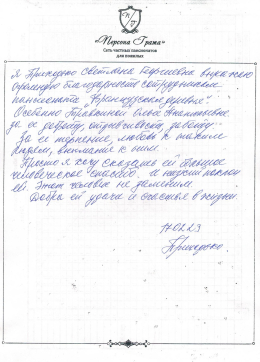 «Персона Грата»
Сеть частных пансионатов
для пожилых
Я Приходько Светлана Сергеевна выражаю
огромную благодарность сотрудникам
пансионата "Французская деревня".
Особенно Ольге Анатольевне
за её доброту, отзывчивость, заботу.
За её терпение, любовь к пожилым
людям, внимание к ним.
Просто я хочу сказать ей большое
человеческое спасибо и низкий поклон
ей. Этот человек не заменим.
Добра ей удачи и счастья в жизни.
17.02.23
Приходько